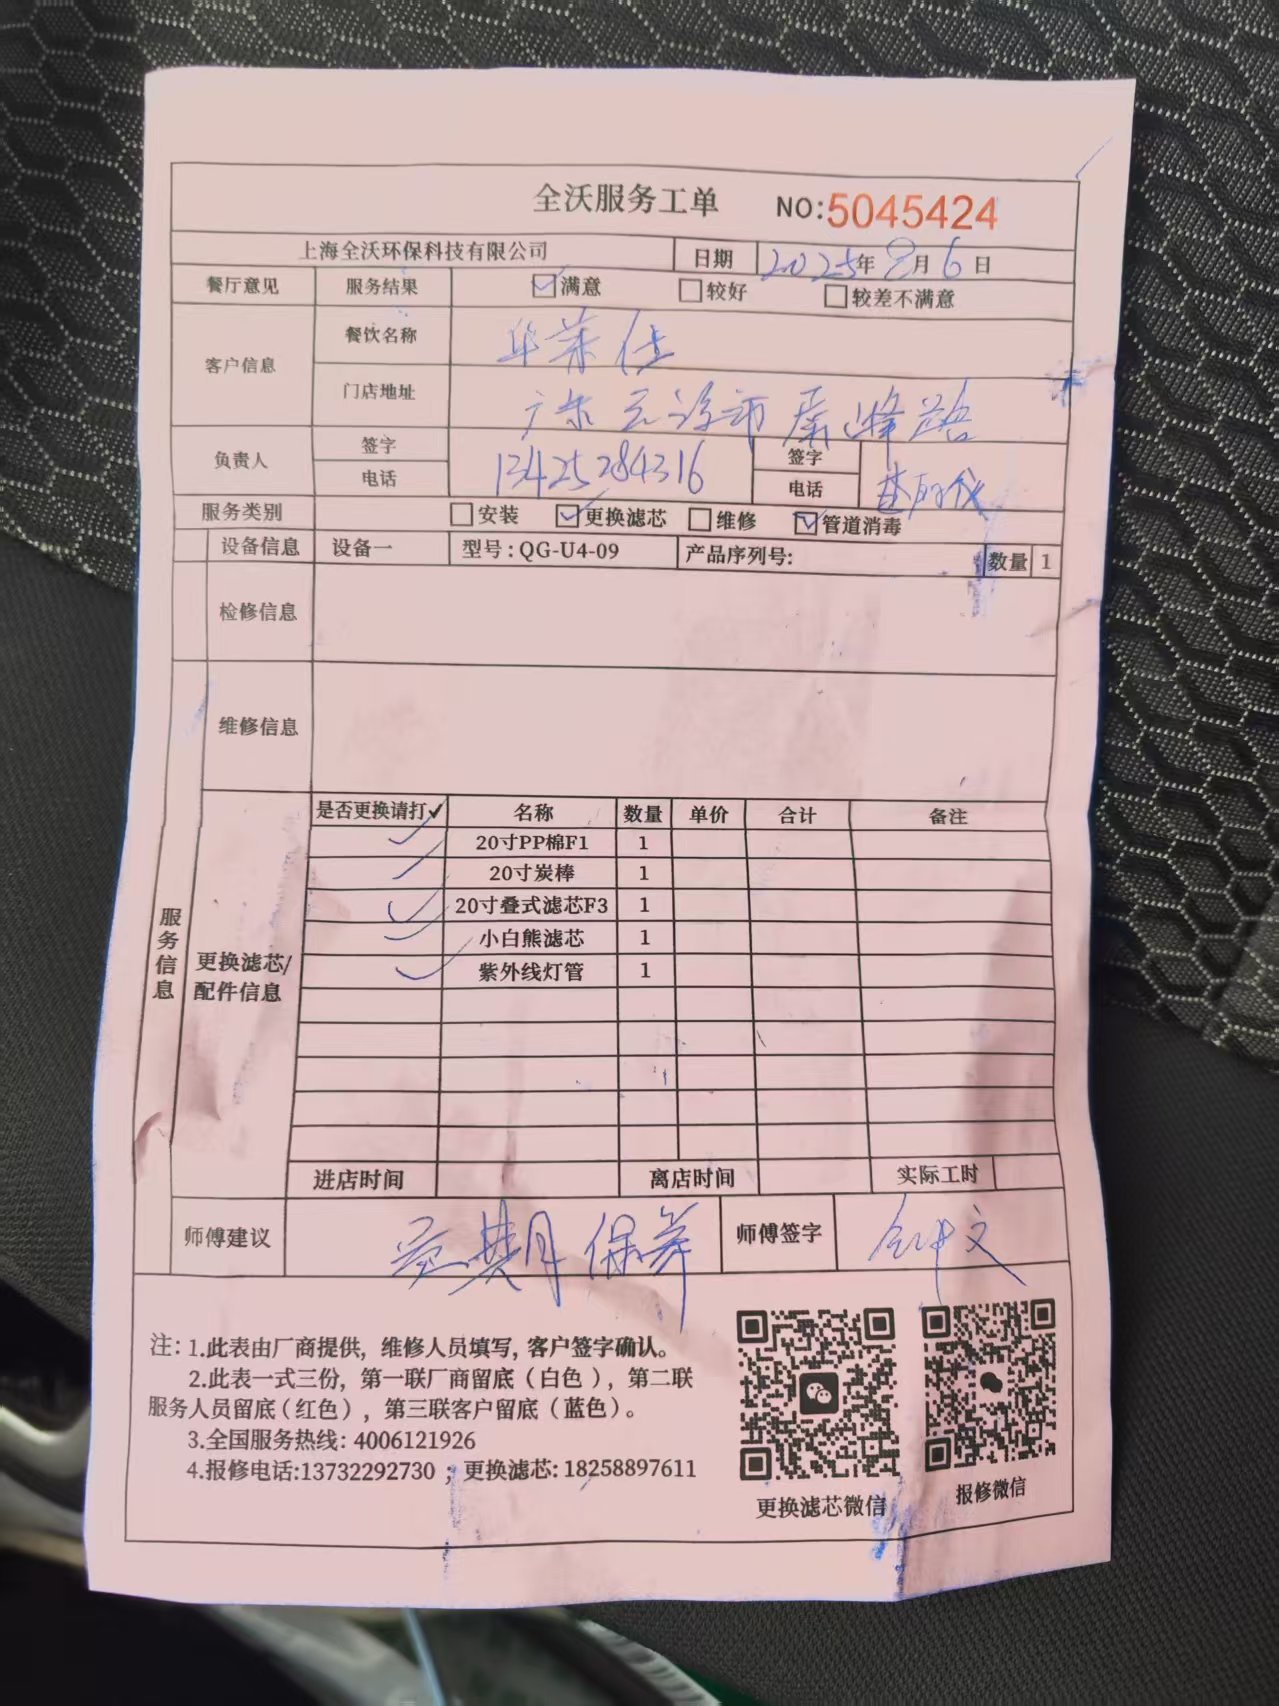 全沃服务工单 NO:5045424
上海全沃环保科技有限公司 日期 2025年8月6日
餐厅意见 服务结果 ☑满意 □较好 □较差不满意
客户信息 餐饮名称 华莱仕
门店地址 广东云浮市 峰路
负责人 签字 签字
电话 13425284316 电话
服务类别 □安装 ☑更换滤芯 □维修 ☑管道消毒
设备信息 设备一 型号:QG-U4-09 产品序列号: 数量 1
检修信息
维修信息
服务信息
更换滤芯/
配件信息
是否更换请打✓ 名称 数量 单价 合计 备注
✓ 20寸PP棉F1 1
✓ 20寸炭棒 1
✓ 20寸叠式滤芯F3 1
✓ 小白熊滤芯 1
✓ 紫外线灯管 1
进店时间 离店时间 实际工时
师傅建议 定期保养 师傅签字
注: 1.此表由厂商提供, 维修人员填写, 客户签字确认。
2.此表一式三份, 第一联厂商留底(白色), 第二联
服务人员留底(红色), 第三联客户留底(蓝色)。
3.全国服务热线: 4006121926
4.报修电话:13732292730 ; 更换滤芯: 18258897611
更换滤芯微信 报修微信